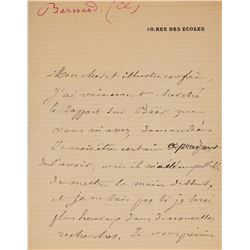 Bernard (Cl)
40, RUE DES ECOLES
Mon cher et illustre confrère,
J'ai vainement cherché
le rapport sur Baër que
vous m'avez demandé.
Je crois être certain cependant
de l'avoir, mais il m'est impossible
de mettre la main dessus,
et je ne sais pas si je serai
plus heureux dans de nouvelles
recherches. Je vous